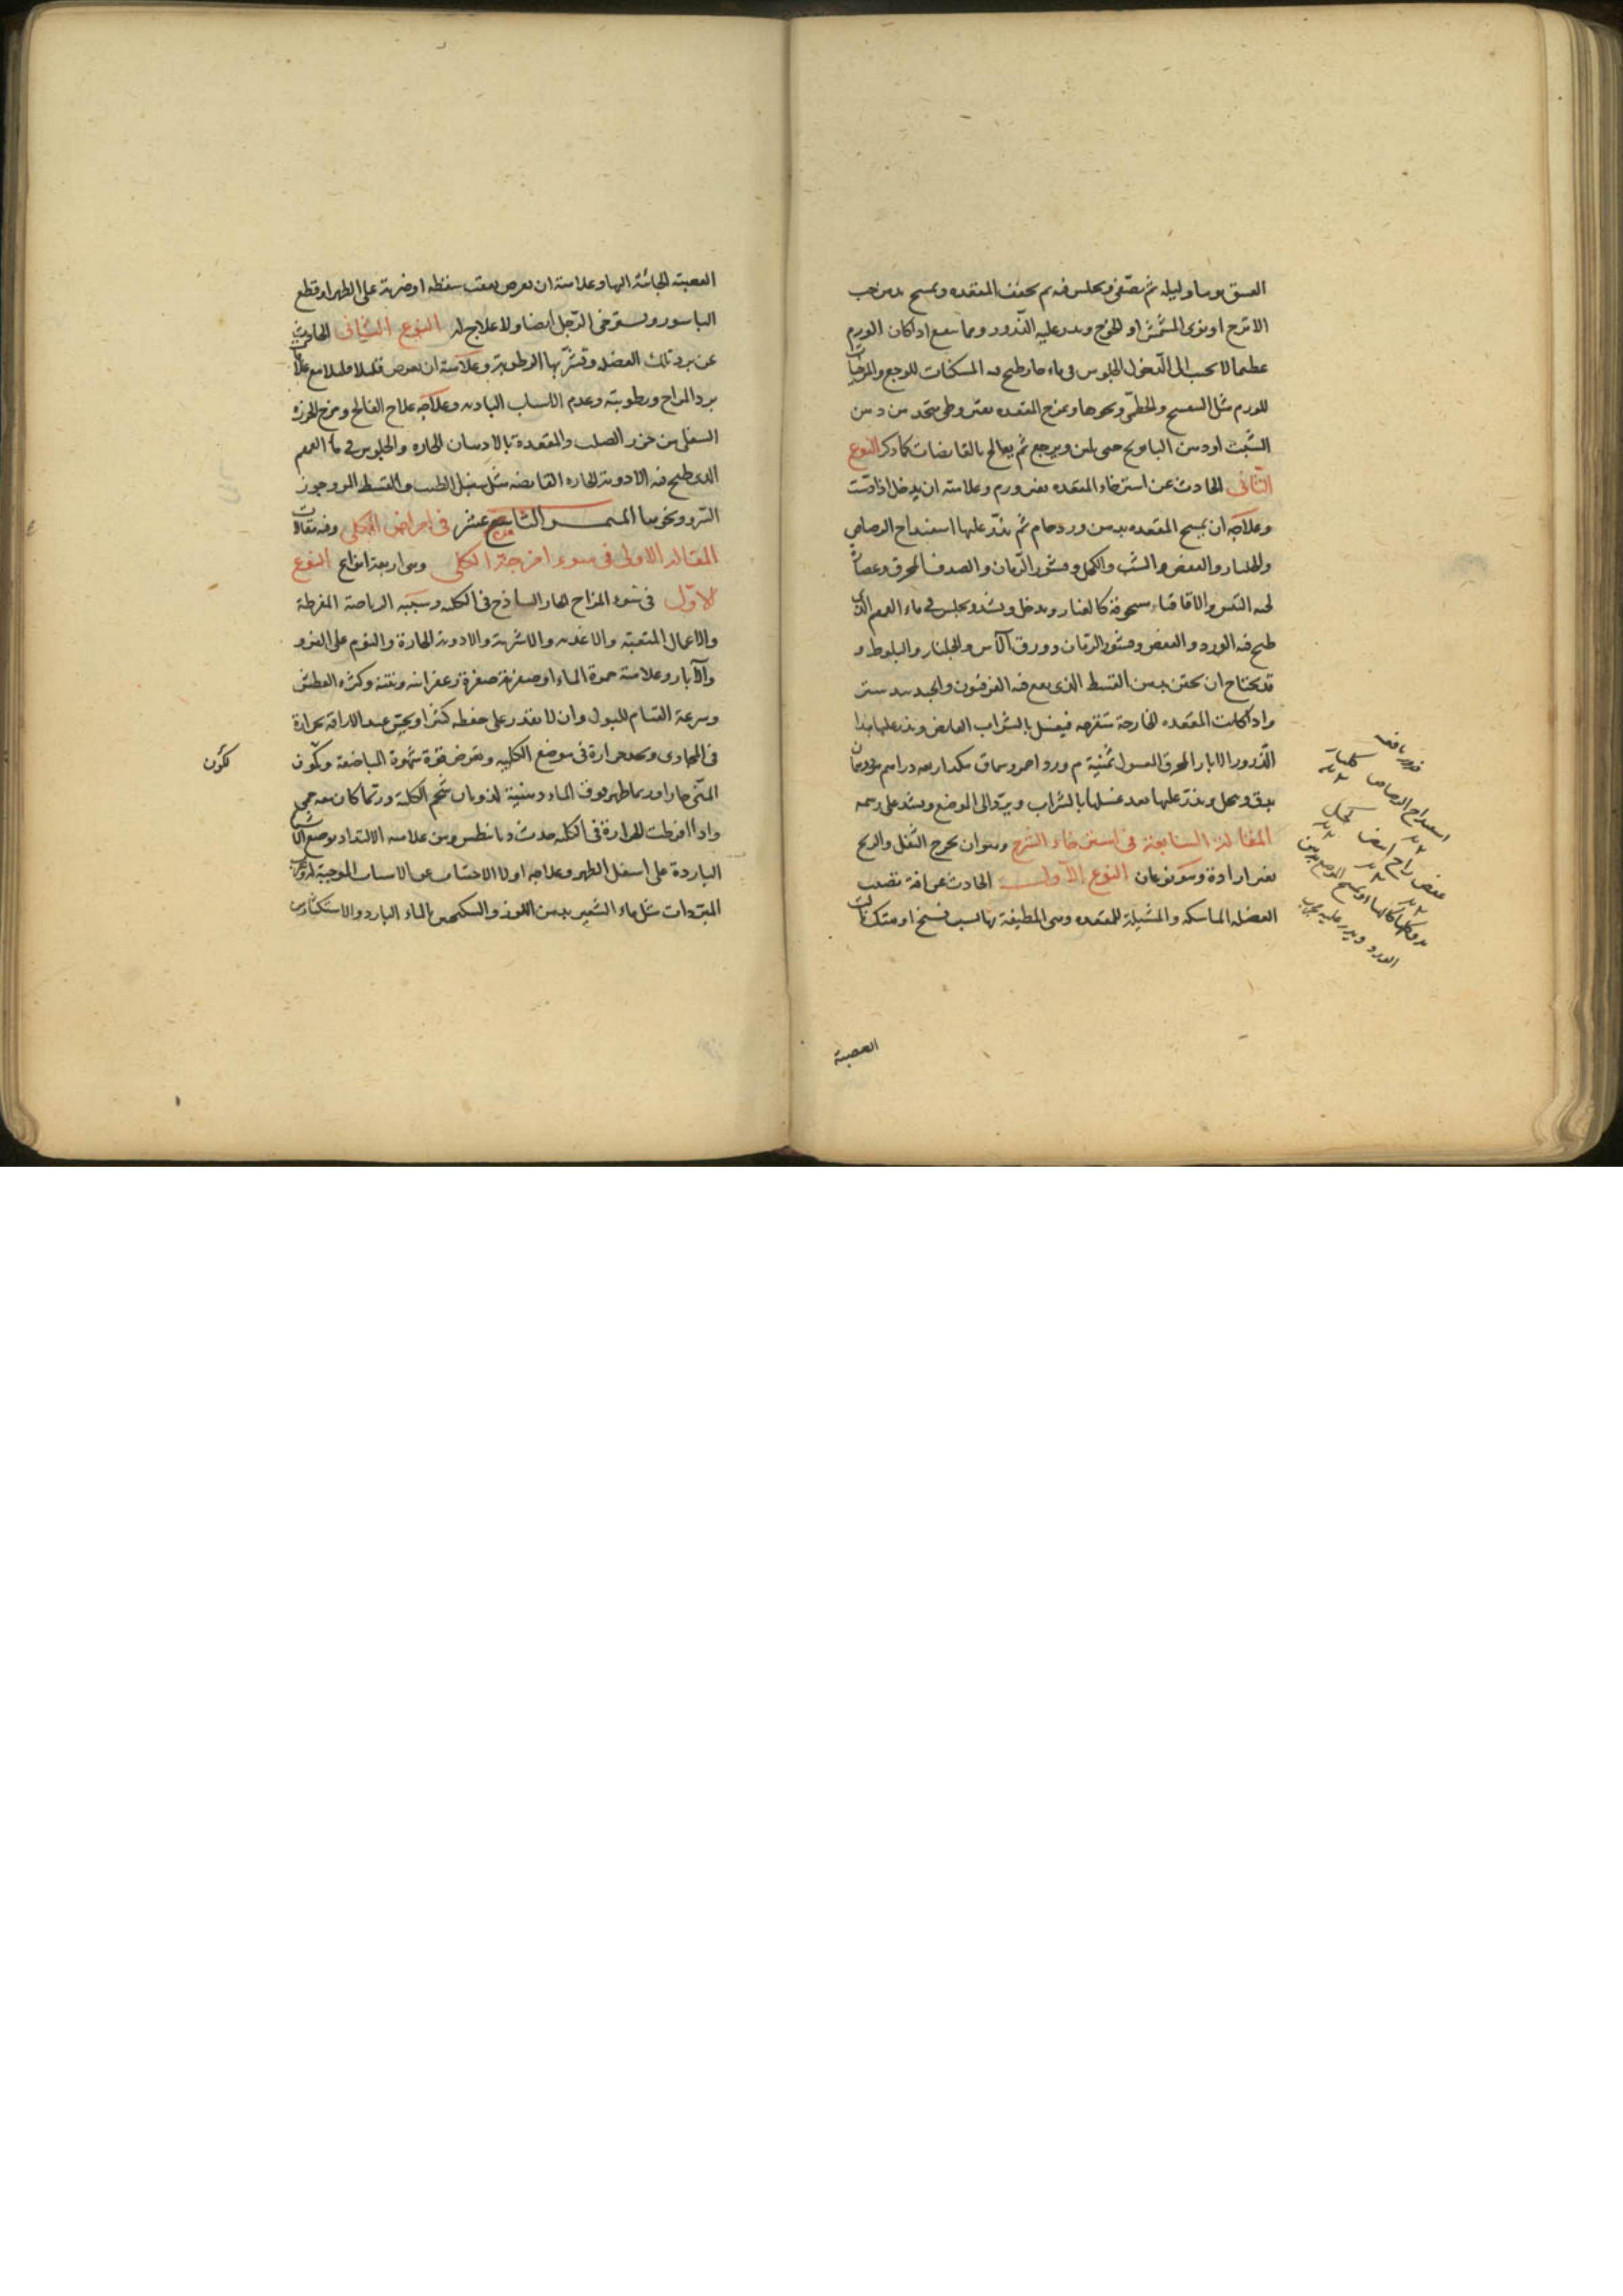 العتيق يوما وليله ثم يصفى ويجلس فيه ثم يجفف المقعده ويمسح بدهن حب
الاترج او نوى المشمش او الخوخ ويذر عليه الذرور ومما ينفع اذا كان الورم
عظيما لا يجيب الى الدخول الجلوس فى ماء حار طبخ فيه المسكنات للوجع والمرخيات
للورم مثل البنفسج والخطمى ونحوها ويمرخ المقعده بقيروطى متخذ من دهن
الشبث او دهن البابونج حتى يلين ويرجع ثم يعالج بالقابضات كما ذكر النوع
الثانى الحادث عن استرخاء المقعده بغير ورم وعلامته ان يدخل اذا دست
وعلاجه ان يمسح المقعده بدهن ورد خام ثم يذر عليها اسفيداج الرصاص
والجلنار والعفص والشب والكحل وقشور الرمان والصدف المحرق وعصارة
لحيه التيس والاقاقيا مسحوقة كالغبار ويدخل ويشد ويجلس فى ماء القمقم الذى
طبخ فيه الورد والعفص وقشور الرمان وورق الآس والجلنار والبلوط و
قد يحتاج ان يحقن بدهن القسط الذى يقع فيه الفرفيون والجندبيدستر
واذا كانت المقعده الخارجة متقرحه فيغسل بالشراب القابض ويذر عليها هذا
الذرور الابار المحرق المغسول ثمنية م ورد احمر وسماق مكد اربعه دراهم مر درهمان
يدق وينخل ويذر عليها بعد غسلها بالشراب ويرد الى الموضع ويشد على رسمه
المقالة السابعة فى استرخاء الشرج وهو ان يخرج الثفل والريح
بغير ارادة وهو نوعان النوع الاول الحادث عن افة تصيب
العضله الماسكه والمشيلة للمقعده وهى المطيفة بها لسبب فسخ او هتك نالت
ذرور نافعه
اسفيداج الرصاص كلنار
عفص زاج ابيض كحل
الورد ويذر عليه مجرب
العصبة
العصبة الجائية اليها وعلامته ان يعرض بعقب سقطه او ضربة على الظهر او قطع
الباسور ويسترخى الرجل ايضا ولا علاج له النوع الثانى الحادث
عن برد تلك العضله وتشربها الرطوبة وعلامته ان يعرض قليلا قليلا مع علامات
برد المزاج ورطوبته وعدم الاسباب الباديه وعلاجه علاج الفالج ومرخ الخرزه
السفلى من خرز الصلب والمقعدة بالادهان الحاره والجلوس فى ماء القمقم
الذى طبخ فيه الادوية الحاره القابضه مثل سنبل الطيب والقسط المر وجوز
السرو ونحوها القسم التاسع عشر فى امراض الكلى وفيه مقالات
المقالة الاولى فى سوء امزجة الكلى وهى اربعة انواع النوع
الاول فى سوء المزاج الحار الساذج فى الكليه وسببه الرياضة المفرطة
والاعمال المتعبة والاغذية والاشربة والادوية الحارة والنوم على الفرو
والآبار وعلامته حمرة الماء او صفرته صفرة زعفرانيه ونتنه وكثره العطش
وسرعة القيام للبول وان لا يقدر على حفظه كثيرا ويحس عند اراقته بحرارة
فى المجارى ويجد حرارة فى موضع الكليه ويعرض قوة شهوة المباضعة ويكون
المنى حارا وربما ظهر فوق الماء دهنية لذوبان شحم الكلية وربما كان معه حمى
واذا افرطت الحرارة فى الكليه حدث ديانيطس ومن علامته الالتذاذ بوضع الاشياء
الباردة على اسفل الظهر وعلاجه اولا الاجتناب عن الاسباب الموجبة له وشرب
المبردات مثل ماء الشعير بدهن اللوز والسكنجبين بالماء البارد والاستكثار من
تكون